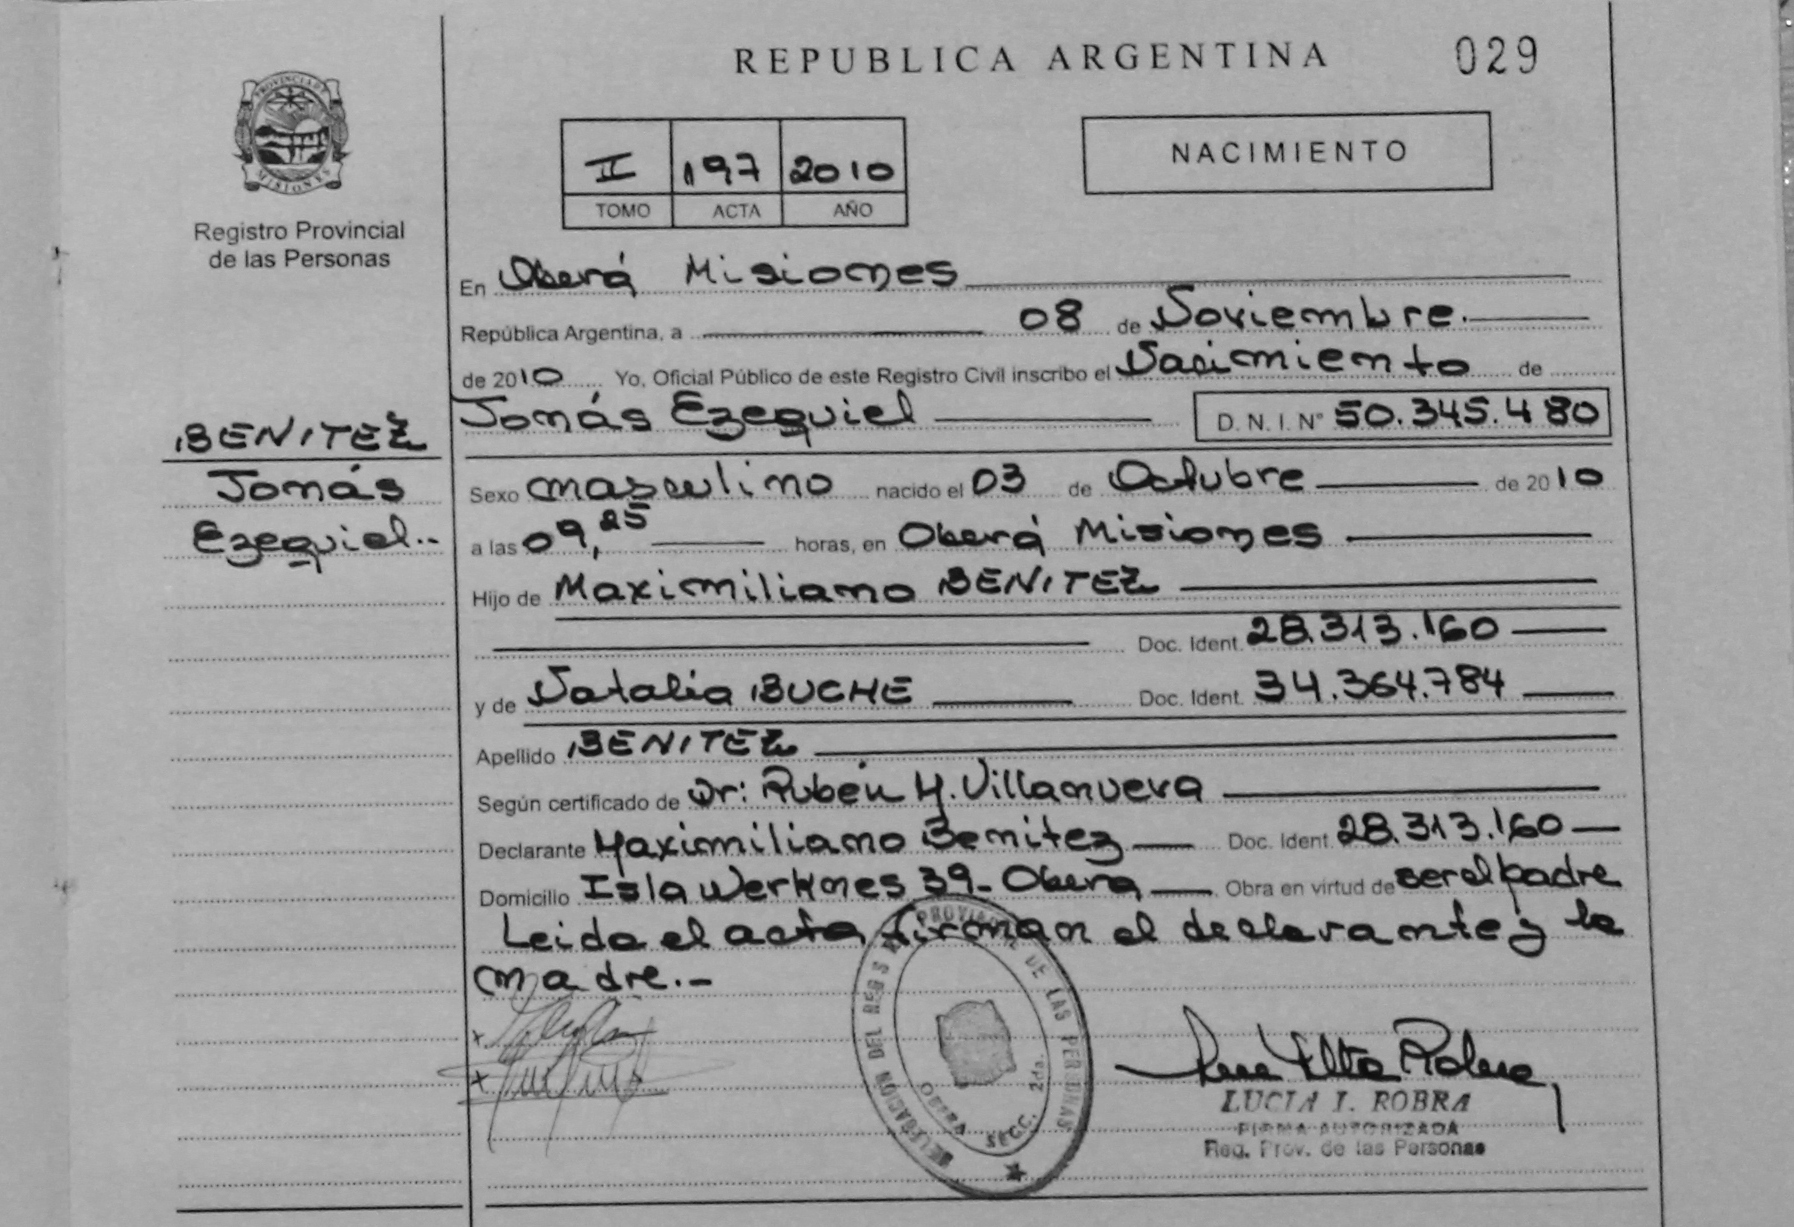 REPUBLICA ARGENTINA
029
PROVINCIA DE MISIONES
Registro Provincial
de las Personas
II 197 2010
TOMO ACTA AÑO
NACIMIENTO
En Oberá Misiones
República Argentina, a 08 de Noviembre.
de 2010 Yo, Oficial Público de este Registro Civil inscribo el Nacimiento de
Jonás Ezequiel D. N. I. Nº 50.345.480
BENITEZ
Jonás
Ezequiel..
Sexo masculino nacido el 03 de Octubre de 2010
a las 09,25 horas, en Oberá Misiones
Hijo de Maximiliano BENITEZ
Doc. Ident. 28.313.160
y de Natalia BUCHE Doc. Ident. 34.364.784
Apellido BENITEZ
Según certificado de Dr: Rubén H. Villanueva
Declarante Maximiliano Benitez Doc. Ident. 28.313.160
Domicilio Isla Werknes 39- Obera Obra en virtud de ser el padre
Leida el acta firman el declarante y la
madre.-
DELEGACION DEL REG. PROVINCIAL DE LAS PERSONAS
OBERA SECC. 2da.
LUCIA I. ROBRA
FIRMA AUTORIZADA
Reg. Prov. de las Personas